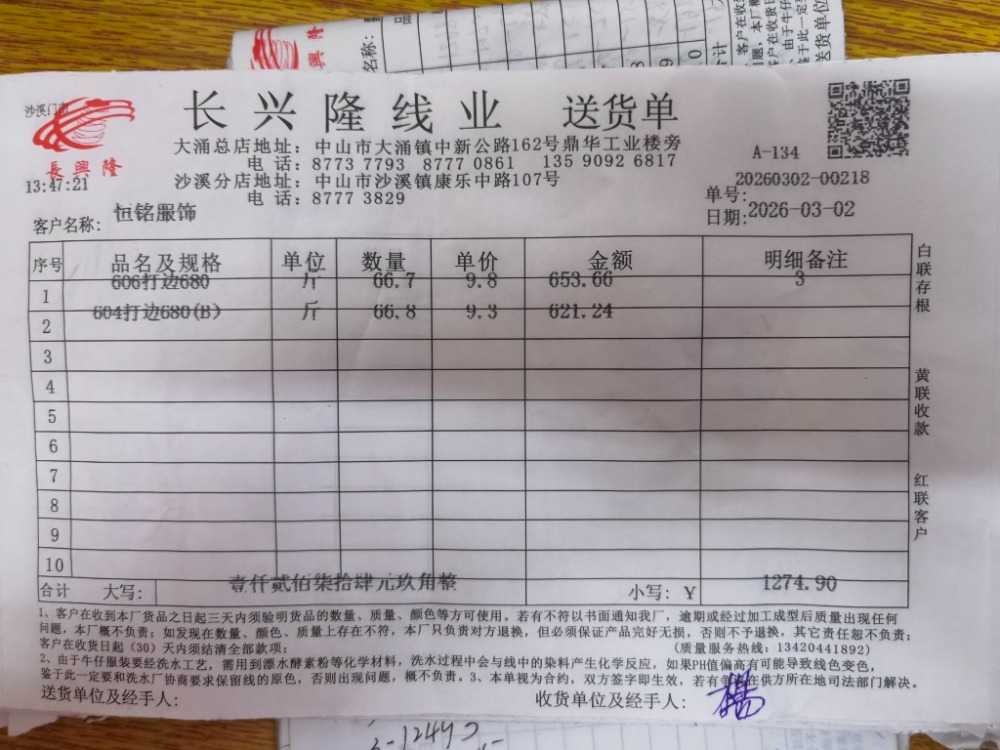 沙溪门市
長興隆
13:47:21
长兴隆线业 送货单
大涌总店地址：中山市大涌镇中新公路162号鼎华工业楼旁
电 话：8773 7793 8777 0861 135 9092 6817
沙溪分店地址：中山市沙溪镇康乐中路107号
电 话：8777 3829
A-134
单号：20260302-00218
日期：2026-03-02
客户名称：恒铭服饰
序号 品名及规格 单位 数量 单价 金额 明细备注
1 606打边680 斤 66.7 9.8 653.66 3
2 604打边680(B) 斤 66.8 9.3 621.24
3
4
5
6
7
8
9
10
合计 大写：壹仟贰佰柒拾肆元玖角整 小写：Y 1274.90
白联存根
黄联收款
红联客户
1、客户在收到本厂货品之日起三天内须验明货品的数量、质量、颜色等方可使用。若有不符以书面通知我厂，逾期或经过加工成型后质量出现任何
问题，本厂概不负责；如发现在数量、颜色、质量上存在不符，本厂只负责对方退换，但必须保证产品完好无损，否则不予退换，其它责任恕不负责；
客户在收货日起（30）天内须结清全部款项； （质量服务热线：13420441892）
2、由于牛仔服装要经洗水工艺，需用到漂水酵素粉等化学材料，洗水过程中会与线中的染料产生化学反应，如果PH值偏高有可能导致线色变色，
鉴于此一定要和洗水厂协商要求保留线的原色，否则出现问题，概不负责。3、本单视为合约，双方签字即生效，若有争在供方所在地司法部门解决。
送货单位及经手人： 收货单位及经手人：